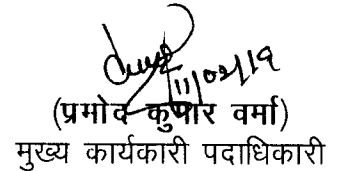 11/02/19
(प्रमोद कुमार वर्मा)
मुख्य कार्यकारी पदाधिकारी